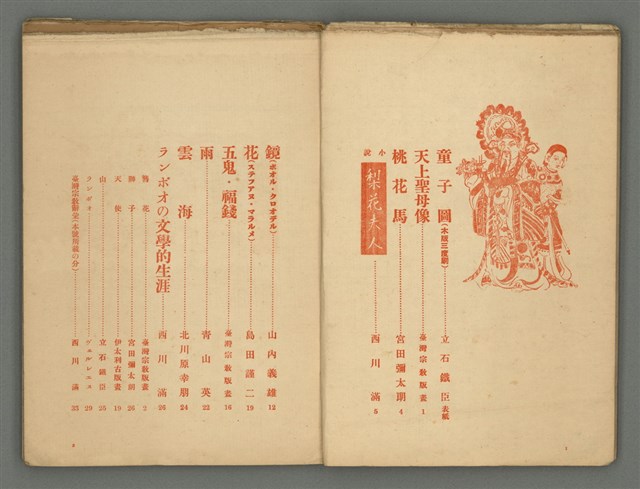 童子圖（木版三度刷）……立石鐵臣 表紙
天上聖母像……臺灣宗教版畫 1
桃花馬……宮田彌太朗 4
小說 梨花夫人……西川滿 5
鏡（ポオル・クロオデル）……山內義雄 12
花（ステフアヌ・マラルメ）……島田謹二 19
五鬼・福錢……臺灣宗教版畫 16
雨……青山英 22
雲海……北川原幸朋 24
ランボオの文學的生涯……西川滿 26
花……臺灣宗教版畫 2
獅子……宮田彌太朗 26
天使……伊太利古版畫 19
山……立石鐵臣 25
ランボオ……ヴェルレエヌ 29
西川滿 33